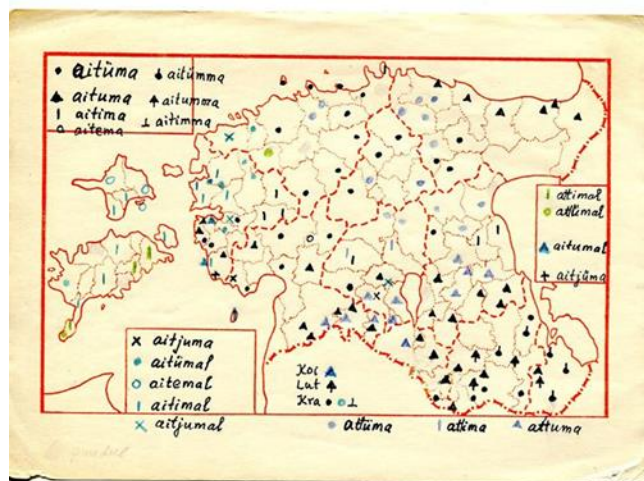 aitüma aitümma
aituma aitumma
aitima aitimma
aitema
attimal
attümal
aitumal
aitjüma
aitjuma
aitümal
aitemal
aitimal
aitjumal
Koi
Lut
Kra
attüma attima attuma